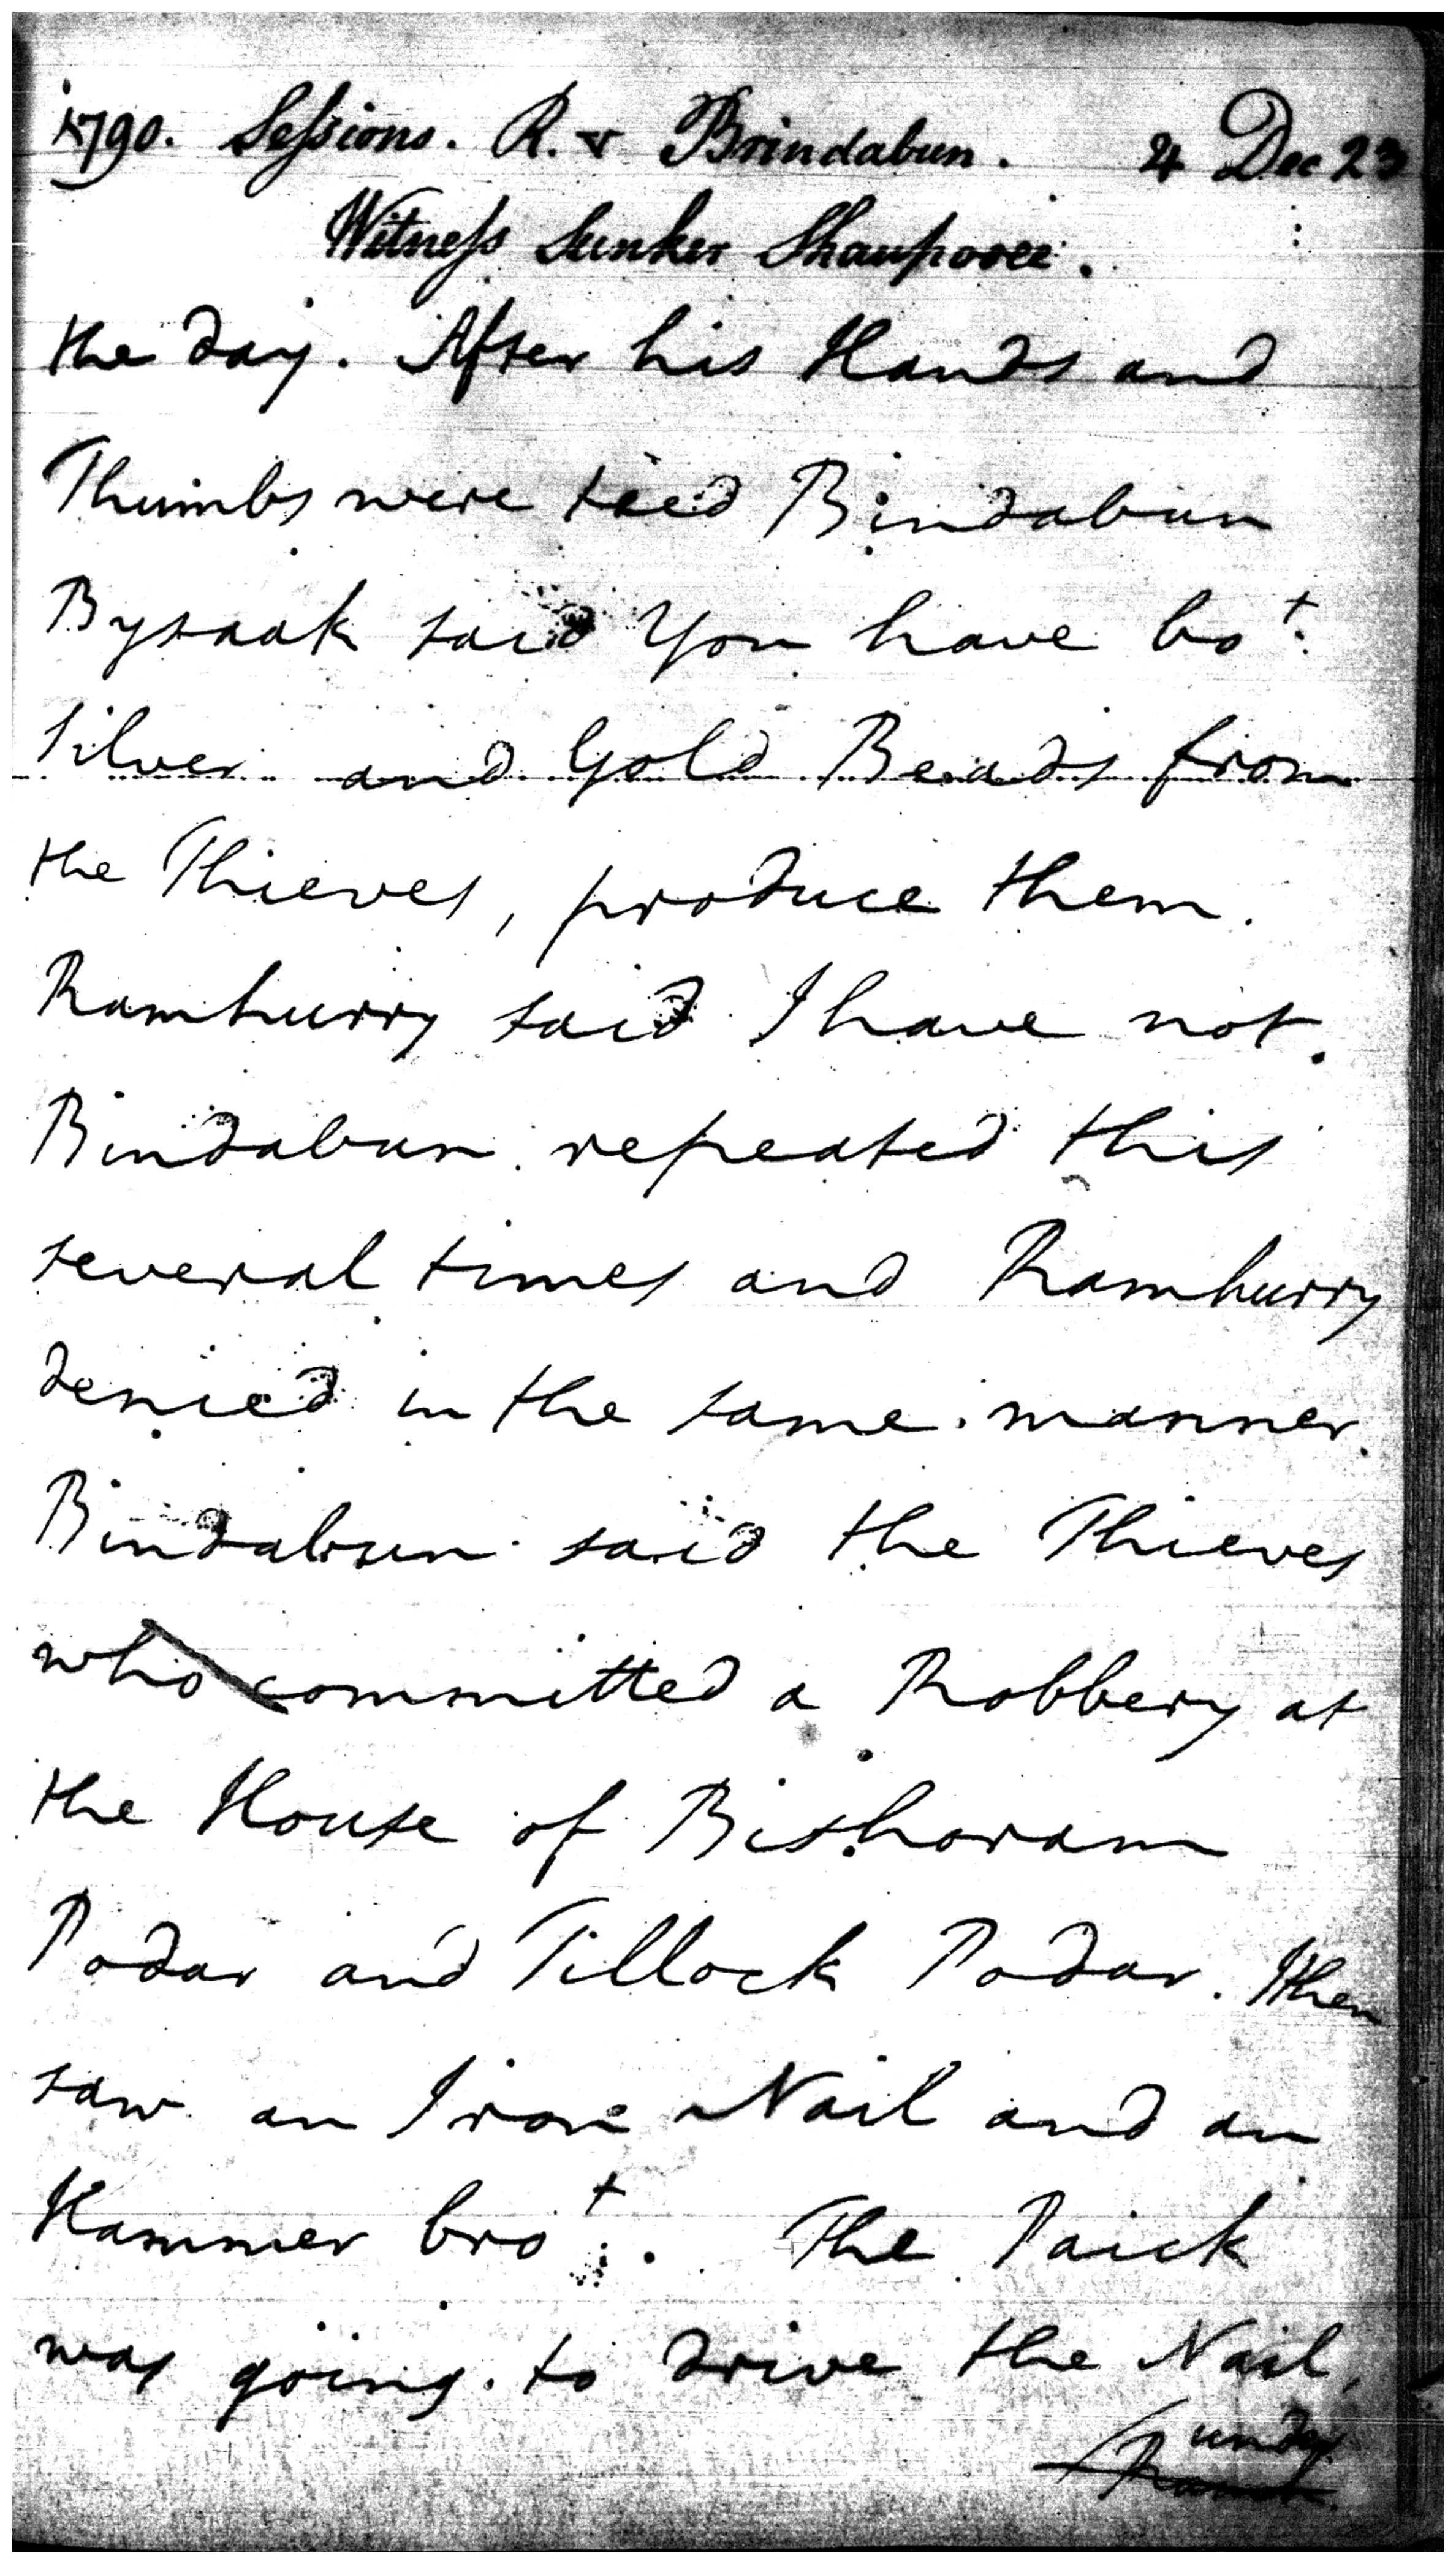 1790. Sessions. R. v Brindabun. 4 Dec 23
Witness Sunker Shauporee.
the day. After his Hands and
Thumbs were tied Bindabun
Bysaak said You have bot.
silver and Gold Beads from
the Thieves, produce them.
Ramhurry said I have not.
Bindabun repeated this
several times and Ramhurry
denied in the same manner.
Bindabun said the Thieves
who committed a Robbery at
the House of Bishoram
Podar and Tillock Podar. I then
saw an Iron Nail and an
Hammer brot. The Paick
was going to drive the Nail
under